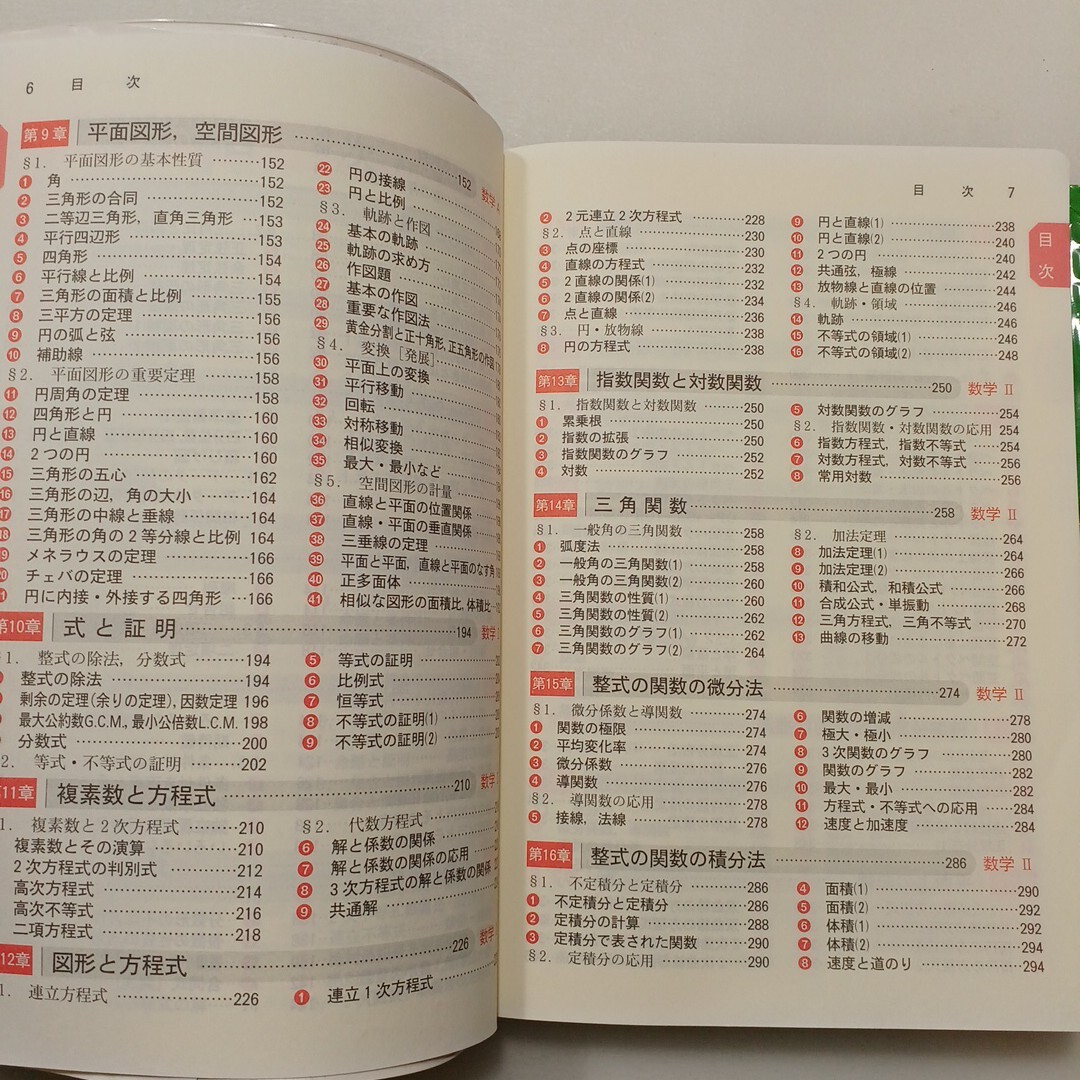 6 目 次
第9章 平面図形，空間図形 ……152 数学A
§1. 平面図形の基本性質 ………152
1 角 ………152
2 三角形の合同 ………152
3 二等辺三角形，直角三角形 …153
4 平行四辺形 ………153
5 四角形 ………154
6 平行線と比例 ………154
7 三角形の面積と比例 ………155
8 三平方の定理 ………156
9 円の弧と弦 ………156
10 補助線 ………156
§2. 平面図形の重要定理 ………158
11 円周角の定理 ………158
12 四角形と円 ………160
13 円と直線 ………160
14 2つの円 ………160
15 三角形の五心 ………162
16 三角形の辺，角の大小 ………164
17 三角形の中線と垂線 ………164
18 三角形の角の2等分線と比例 164
19 メネラウスの定理 ………166
20 チェバの定理 ………166
21 円に内接・外接する四角形 …166
22 円の接線
23 円と比例
§3. 軌跡と作図
24 基本の軌跡
25 軌跡の求め方
26 作図題
27 基本の作図
28 重要な作図法
29 黄金分割と正十角形，正五角形の作図
§4. 変換［発展］
30 平面上の変換
31 平行移動
32 回転
33 対称移動
34 相似変換
35 最大・最小など
§5. 空間図形の計量
36 直線と平面の位置関係
37 直線・平面の垂直関係
38 三垂線の定理
39 平面と平面，直線と平面のなす角
40 正多面体
41 相似な図形の面積比，体積比
第10章 式と証明 ………194 数学
1. 整式の除法，分数式 ………194
整式の除法 ………194
剰余の定理(余りの定理)，因数定理 196
最大公約数G.C.M.，最小公倍数L.C.M. 198
分数式 ………200
2. 等式・不等式の証明 ………202
5 等式の証明
6 比例式
7 恒等式
8 不等式の証明(1)
9 不等式の証明(2)
第11章 複素数と方程式 ………210 数学
1. 複素数と2次方程式 ………210
複素数とその演算 ………210
2次方程式の判別式 ………212
高次方程式 ………214
高次不等式 ………216
二項方程式 ………218
§2. 代数方程式
6 解と係数の関係
7 解と係数の関係の応用
8 3次方程式の解と係数の関係
9 共通解
12章 図形と方程式 ………226 数学
1. 連立方程式 ………226
1 連立1次方程式
目 次 7
2 2元連立2次方程式 ………228
§2. 点と直線 ………230
3 点の座標 ………230
4 直線の方程式 ………230
5 2直線の関係(1) ………232
6 2直線の関係(2) ………234
7 点と直線 ………236
§3. 円・放物線 ………238
8 円の方程式 ………238
9 円と直線(1) ………238
10 円と直線(2) ………240
11 2つの円 ………240
12 共通弦，極線 ………242
13 放物線と直線の位置 ………244
§4. 軌跡・領域 ………246
14 軌跡 ………246
15 不等式の領域(1) ………246
16 不等式の領域(2) ………248
目次
第13章 指数関数と対数関数 ………250 数学Ⅱ
§1. 指数関数と対数関数 ………250
1 累乗根 ………250
2 指数の拡張 ………250
3 指数関数のグラフ ………252
4 対数 ………252
5 対数関数のグラフ ………254
§2. 指数関数・対数関数の応用 254
6 指数方程式，指数不等式 ……254
7 対数方程式，対数不等式 ……256
8 常用対数 ………256
第14章 三角関数 ………258 数学Ⅱ
§1. 一般角の三角関数 ………258
1 弧度法 ………258
2 一般角の三角関数(1) ………258
3 一般角の三角関数(2) ………260
4 三角関数の性質(1) ………260
5 三角関数の性質(2) ………262
6 三角関数のグラフ(1) ………262
7 三角関数のグラフ(2) ………264
§2. 加法定理 ………264
8 加法定理(1) ………264
9 加法定理(2) ………266
10 積和公式，和積公式 ………266
11 合成公式・単振動 ………268
12 三角方程式，三角不等式 ……270
13 曲線の移動 ………272
第15章 整式の関数の微分法 ………274 数学Ⅱ
§1. 微分係数と導関数 ………274
1 関数の極限 ………274
2 平均変化率 ………274
3 微分係数 ………276
4 導関数 ………276
§2. 導関数の応用 ………278
5 接線，法線 ………278
6 関数の増減 ………278
7 極大・極小 ………280
8 3次関数のグラフ ………280
9 関数のグラフ ………282
10 最大・最小 ………282
11 方程式・不等式への応用 ……284
12 速度と加速度 ………284
第16章 整式の関数の積分法 ………286 数学Ⅱ
§1. 不定積分と定積分 ………286
1 不定積分と定積分 ………286
2 定積分の計算 ………288
3 定積分で表された関数 ………290
§2. 定積分の応用 ………290
4 面積(1) ………290
5 面積(2) ………292
6 体積(1) ………292
7 体積(2) ………294
8 速度と道のり ………294